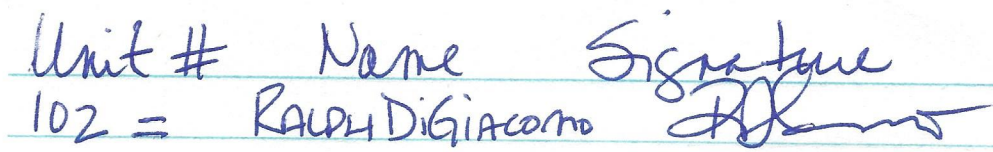 Unit # Name Signature
102 = RALPH DiGIACOMO